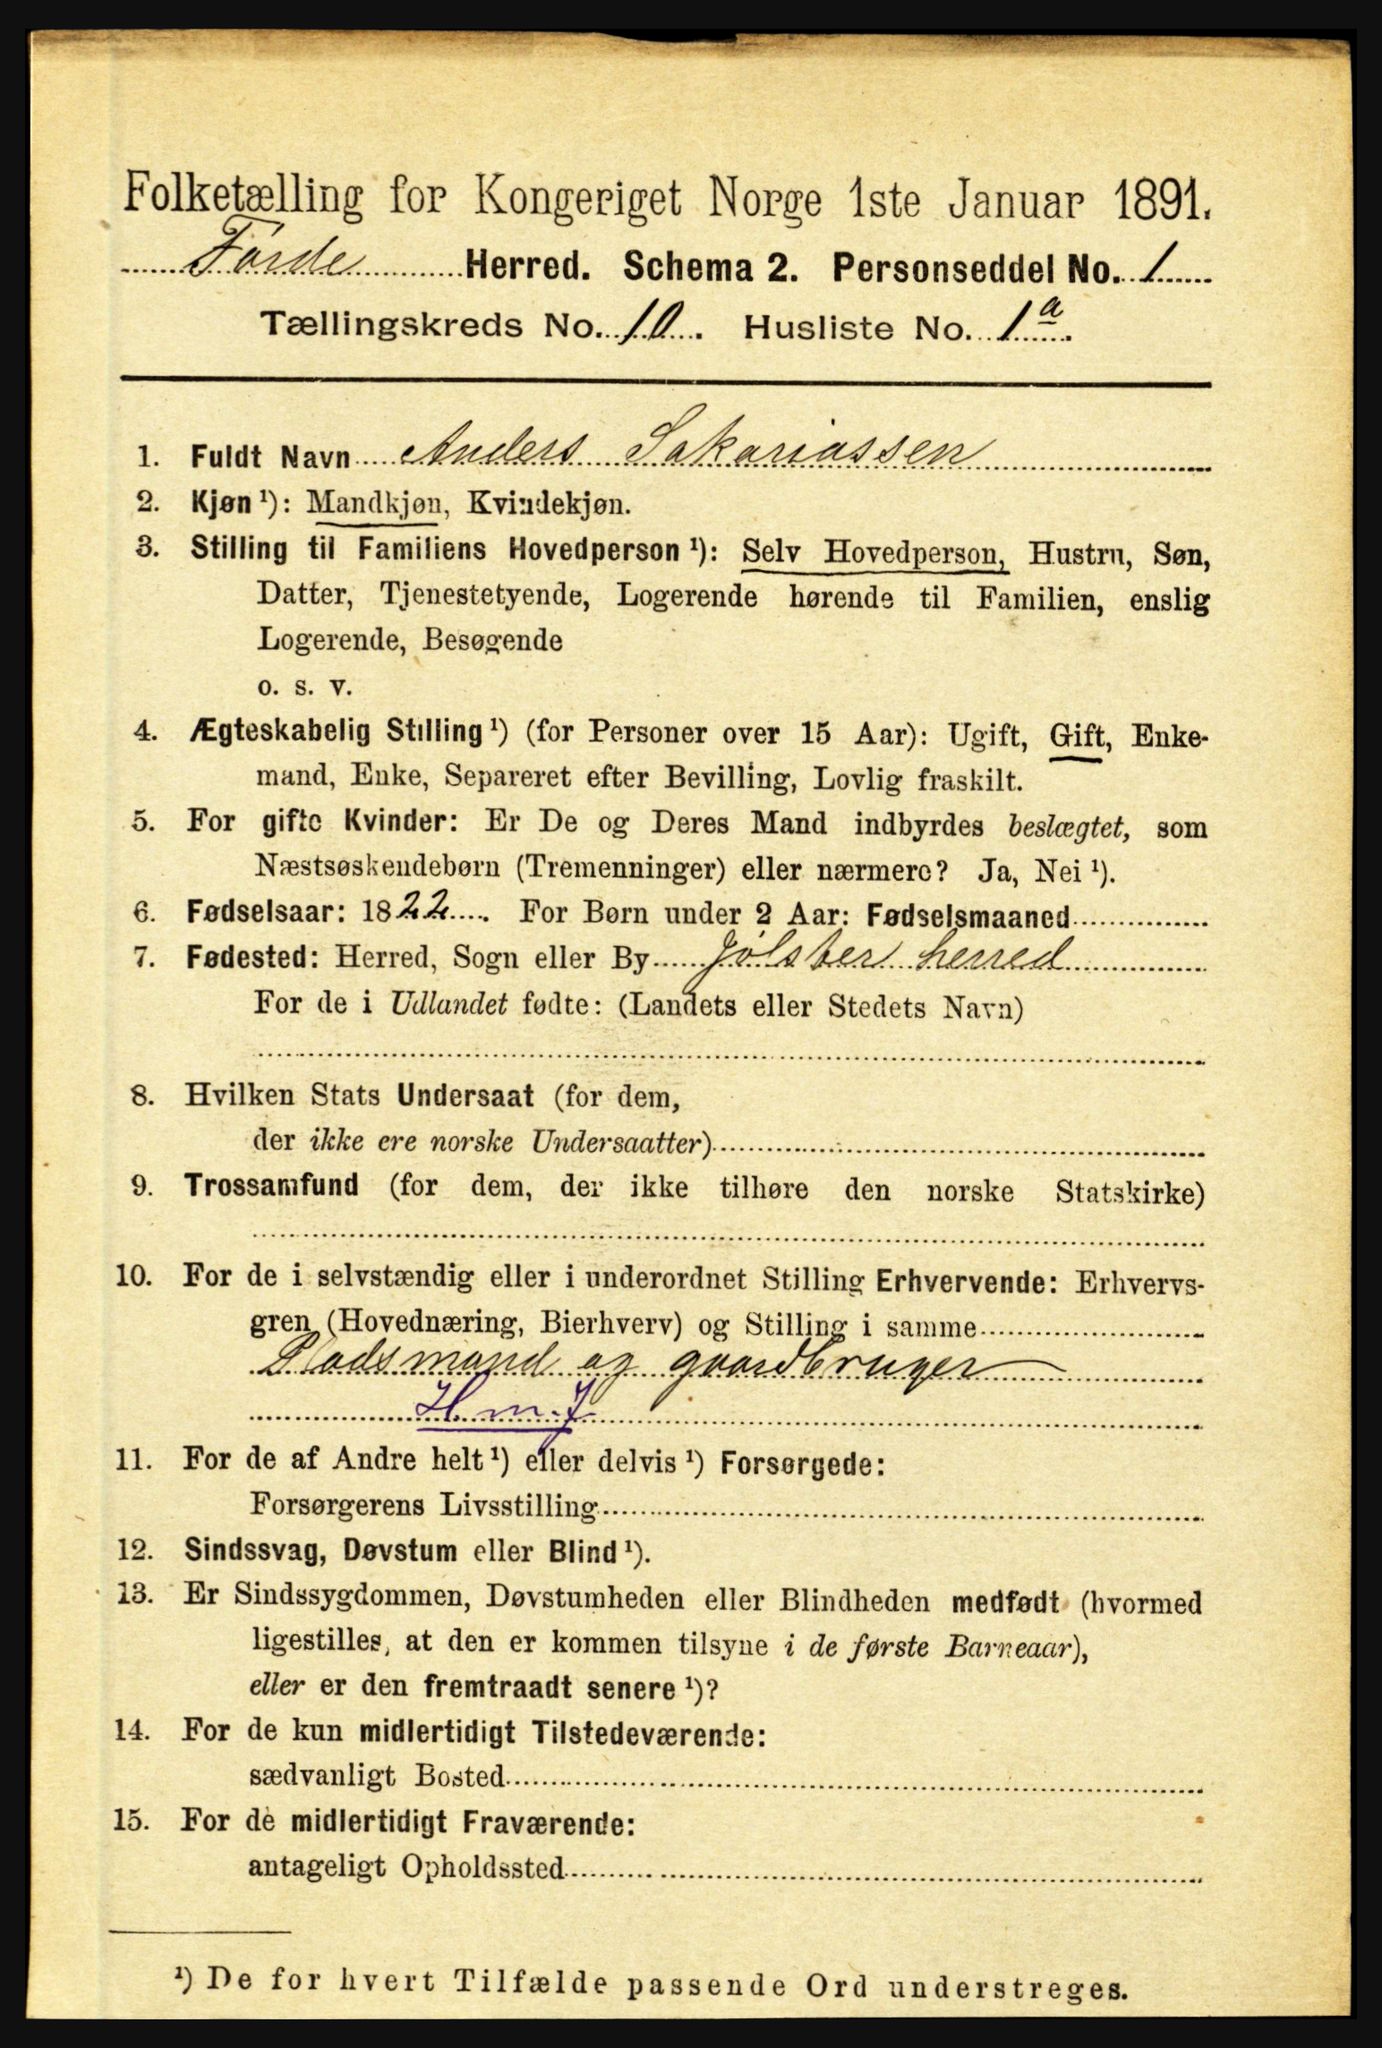 Folketælling for Kongeriget Norge 1ste Januar 1891.
Førde Herred. Schema 2. Personseddel No. 1
Tællingskreds No. 10. Husliste No. 1a.
1. Fuldt Navn Anders Sakariassen
2. Kjøn ¹): Mandkjøn, Kvindekjøn.
3. Stilling til Familiens Hovedperson ¹): Selv Hovedperson, Hustru, Søn,
Datter, Tjenestetyende, Logerende hørende til Familien, enslig
Logerende, Besøgende
o. s. v.
4. Ægteskabelig Stilling ¹) (for Personer over 15 Aar): Ugift, Gift, Enke-
mand, Enke, Separeret efter Bevilling, Lovlig fraskilt.
5. For gifte Kvinder: Er De og Deres Mand indbyrdes beslægtet, som
Næstsøskendebørn (Tremenninger) eller nærmere? Ja, Nei ¹).
6. Fødselsaar: 1822. For Børn under 2 Aar: Fødselsmaaned
7. Fødested: Herred, Sogn eller By Jølster herred
For de i Udlandet fødte: (Landets eller Stedets Navn)
8. Hvilken Stats Undersaat (for dem,
der ikke ere norske Undersaatter)
9. Trossamfund (for dem, der ikke tilhøre den norske Statskirke)
10. For de i selvstændig eller i underordnet Stilling Erhvervende: Erhvervs-
gren (Hovednæring, Bierhverv) og Stilling i samme
Pladsmand og gaardbruger
H. m. J
11. For de af Andre helt ¹) eller delvis ¹) Forsørgede:
Forsørgerens Livsstilling
12. Sindssvag, Døvstum eller Blind ¹).
13. Er Sindssygdommen, Døvstumheden eller Blindheden medfødt (hvormed
ligestilles, at den er kommen tilsyne i de første Barneaar),
eller er den fremtraadt senere ¹)?
14. For de kun midlertidigt Tilstedeværende:
sædvanligt Bosted
15. For de midlertidigt Fraværende:
antageligt Opholdssted
¹) De for hvert Tilfælde passende Ord understreges.